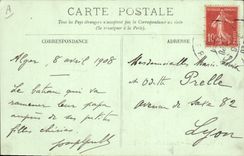 CARTE POSTALE
Tous les Pays étrangers n'acceptent pas la Correspondance au recto
(Se renseigner à la Poste)
CORRESPONDANCE
ADRESSE
Alger 8 avril 1908
Le bateau qui va
ramener leur papa
auprès de ses petites
filles chéries
Mesdemoiselles Marie
et Odette Prelle
avenue de Saxe 82
Lyon